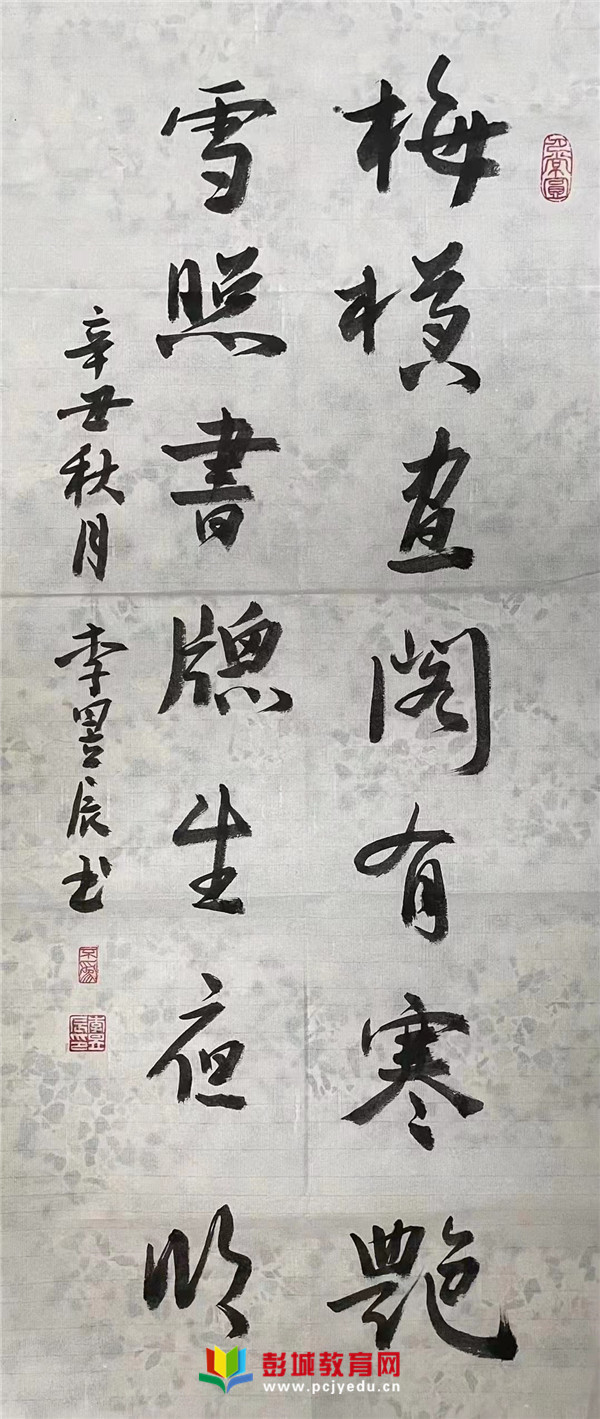 梅横画阁有寒艳
雪照書牕生夜明
辛丑秋月 李昱辰书
彭城教育网
www.pcjyedu.cn